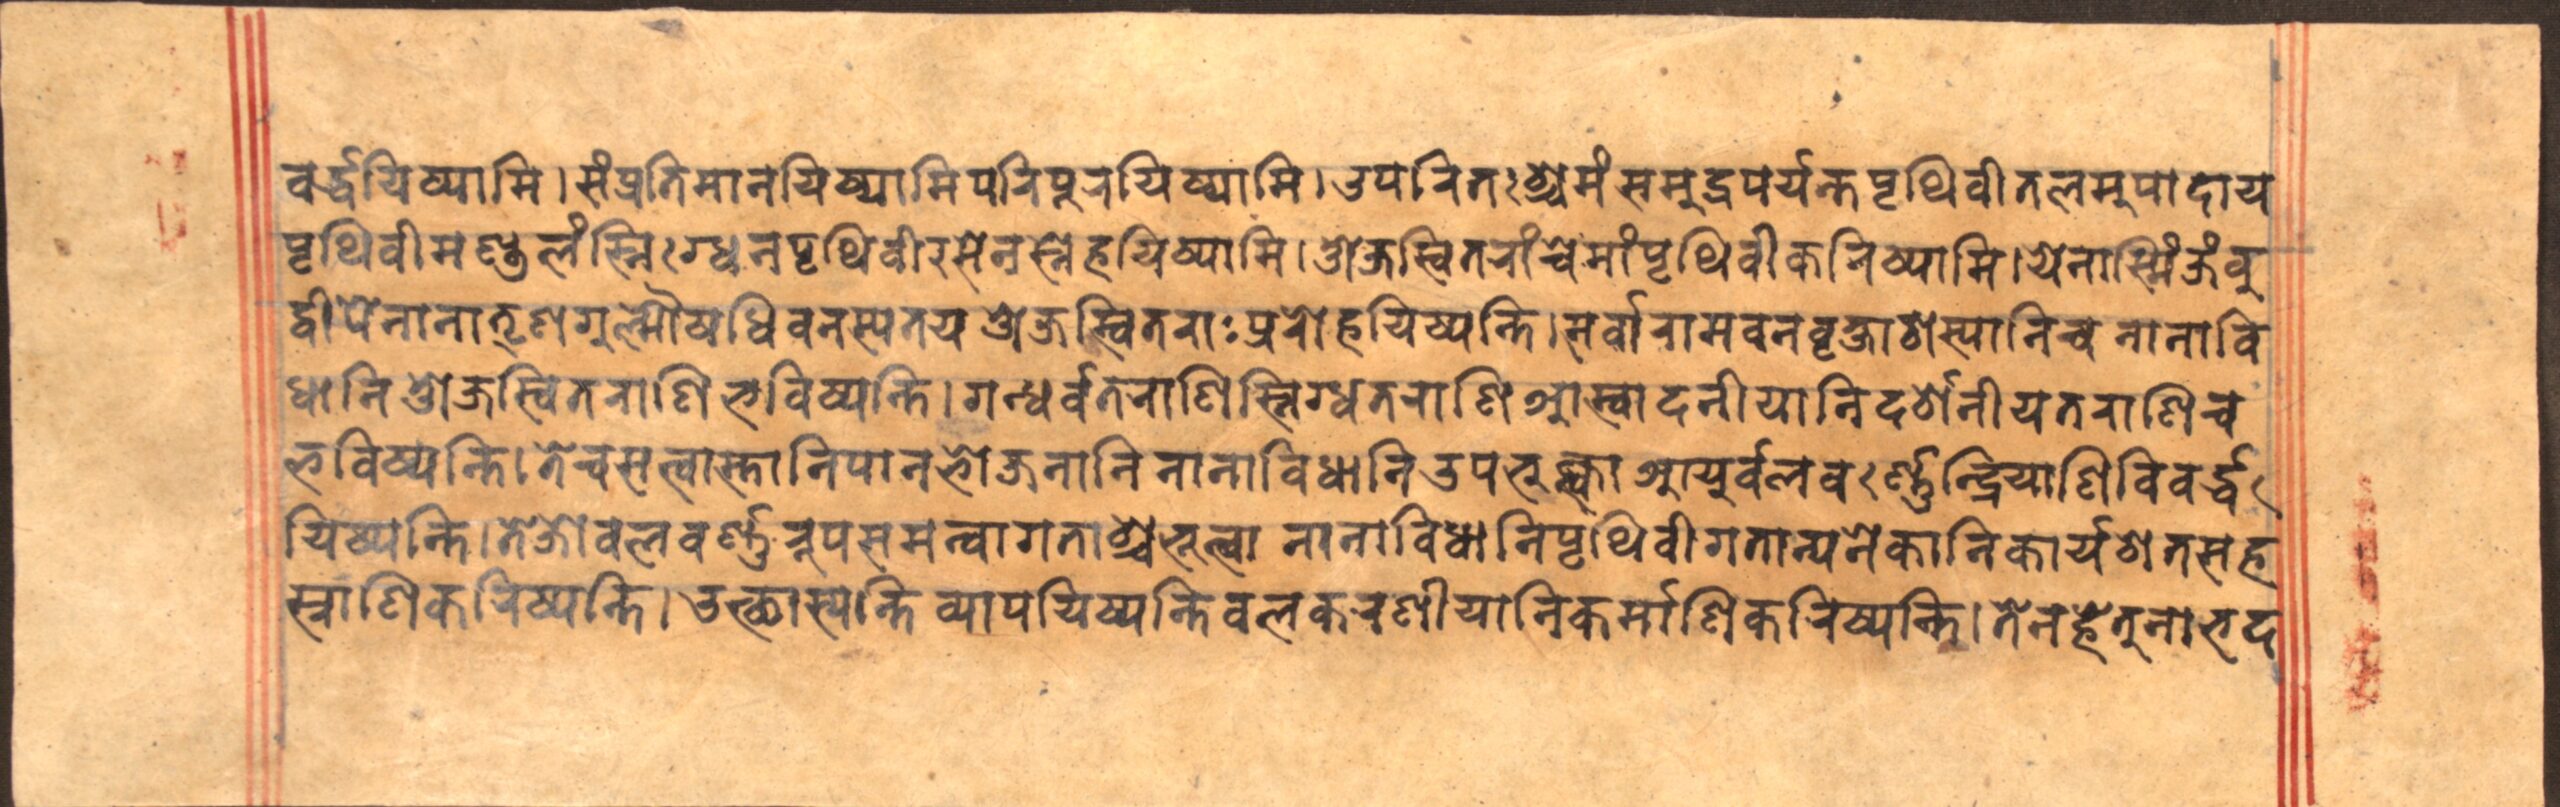 वर्द्धयिष्यामि।संप्रतिमानयिष्यामिपरिपूरयिष्यामि।उपरितःश्चेमंसमुद्रपर्यन्तपृथिवीतलमुपादाय
पृथिवीमण्डलंस्निःग्धनपृथिवीरसेनस्नेहयिष्यामि।ओजस्वितरांश्चेमांपृथिवीकरिष्यामि।येनास्मिंजंबु
द्वीपेनानातृणगुल्मौषधिवनस्पतय ओजस्वितराःप्ररोहयिष्यन्ति।सर्वारामवनवृक्षाशस्यानिच नानावि
धानि ओजस्वितराणि भविष्यन्ति।गन्धर्वतराणिस्निग्धतराणि आस्वादनीयानिदर्शनीयतराणिच
भविष्यन्ति।तेचसत्वास्तानिपानभोजनानि नानाविधानि उपभुक्त्वा आयुर्वलवःर्ण्णेन्द्रियाणिविवर्द्धः
यिष्यन्ति।तेजोवलवर्ण्णरूपसमन्वागताश्चभूत्वा नानाविधानिपृथिवीगतान्यनेकानिकार्यशतसह
स्राणिकरिष्यन्ति।उत्थास्यन्ति व्यापयिष्यन्तिवलकरणीयानिकर्माणिकरिष्यन्ति।तेनहेतुनाभद